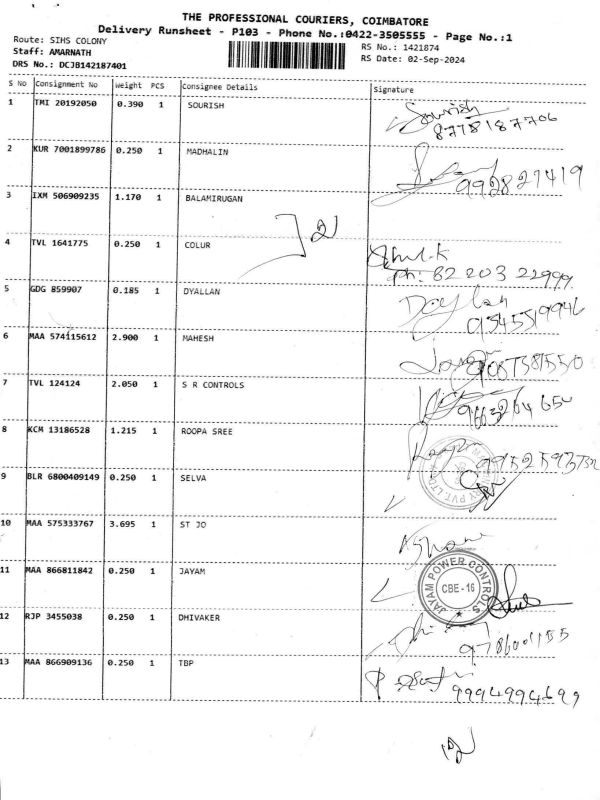 THE PROFESSIONAL COURIERS, COIMBATORE
Delivery Runsheet - P103 - Phone No.:0422-3505555 - Page No.:1
Route: SIHS COLONY
Staff: AMARNATH
DRS No.: DCJB142187401
RS No.: 1421874
RS Date: 02-Sep-2024
S No Consignment No Weight PCS Consignee Details Signature
1 TMI 20192050 0.390 1 SOURISH Sourish
8778187706
2 KUR 7001899786 0.250 1 MADHALIN
992827419
3 IXM 506909235 1.170 1 BALAMIRUGAN
4 TVL 1641775 0.250 1 COLUR
ph: 82 203 22999
5 GDG 859907 0.185 1 DYALLAN
9345519946
6 MAA 574115612 2.900 1 MAHESH
7 TVL 124124 2.050 1 S R CONTROLS
8 KCM 13186528 1.215 1 ROOPA SREE
9 BLR 6800409149 0.250 1 SELVA
10 MAA 575333767 3.695 1 ST JO
11 MAA 866811842 0.250 1 JAYAM
JAYAM POWER CONTROLS
CBE-16
12 RJP 3455038 0.250 1 DHIVAKER
13 MAA 866909136 0.250 1 TBP
9994994699